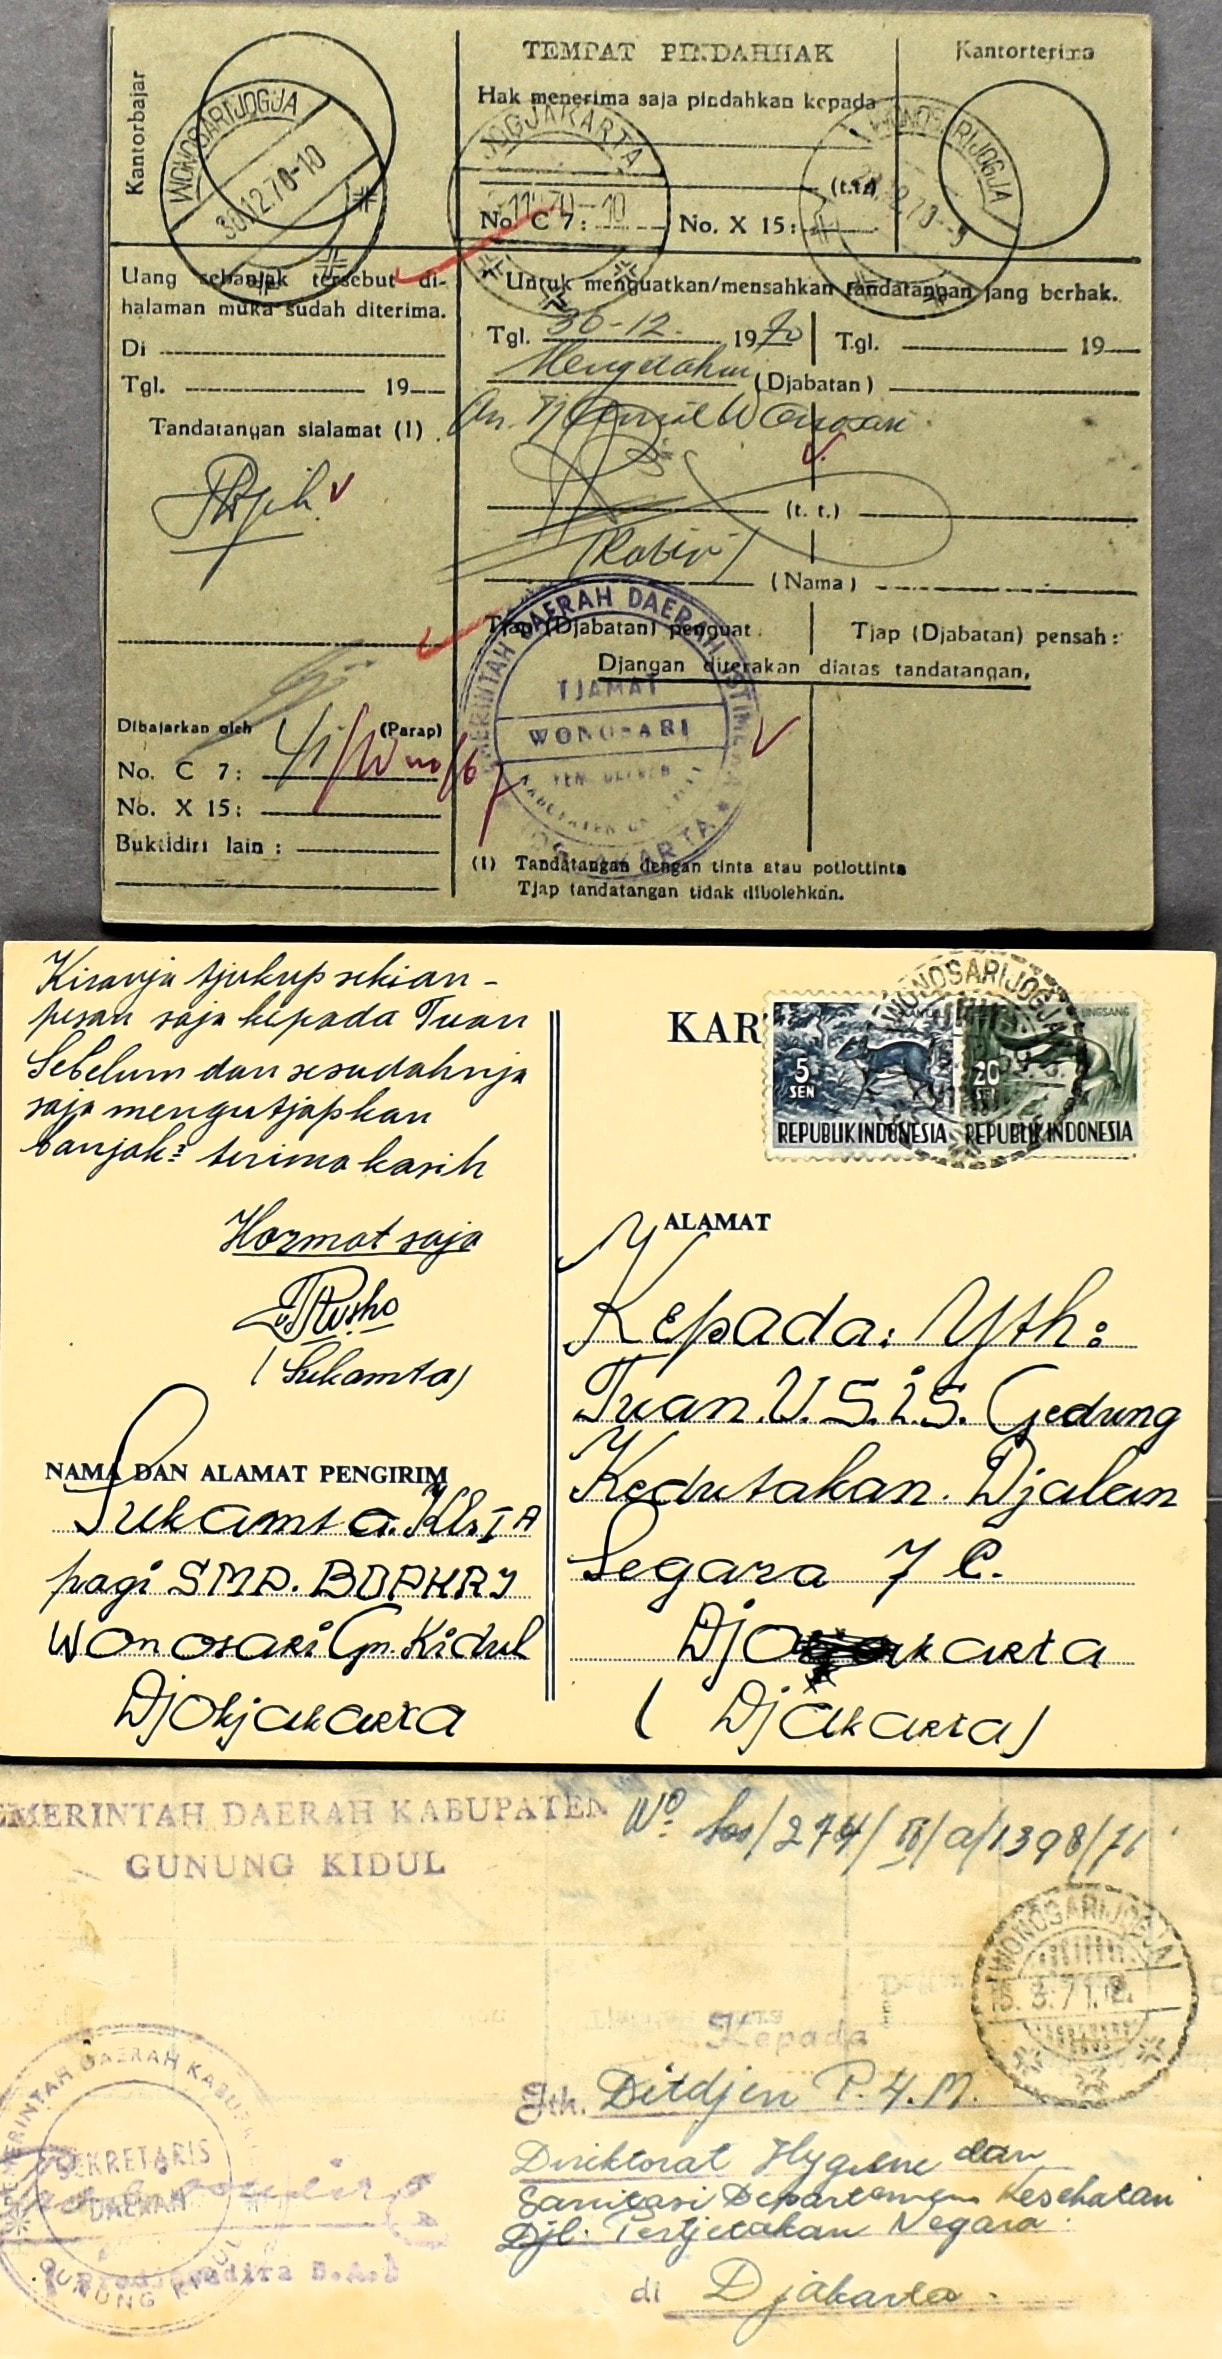 TEMPAT PINDAHHAK
Kantorbajar
Kantorterima
Hak menerima saja pindahkan kepada
(t.t.)
No. C 7: No. X 15:
WONOSARIJOGJA
30.12.70-10
JOGJAKARTA
WONOSARIJOGJA
Uang sebanjak tersebut di-
halaman muka sudah diterima.
Di
Tgl. 19
Tandatangan sialamat (1)
Untuk menguatkan/mensahkan tandatangan jang berhak.
Tgl. 30-12. 1970 Tgl. 19
Mengetahui (Djabatan)
An. Wonosari
(t. t.)
(Nama)
Tjap (Djabatan) penguat. Tjap (Djabatan) pensah:
Djangan diterakan diatas tandatangan.
PEMERINTAH DAERAH DAERAH ISTIMEWA
TJAMAT
WONOSARI
JOGJAKARTA
Dibajarkan oleh (Parap)
No. C 7:
No. X 15:
Buktidiri lain :
(1) Tandatangan dengan tinta atau potlottinta
Tjap tandatangan tidak dibolehkan.
Kiranja tjukup sekian -
pesan saja kepada Tuan
Sebelum dan sesudahnja
saja mengutjapkan
banjak² terima kasih
Hormat saja
(Sukamta)
NAMA DAN ALAMAT PENGIRIM
Sukamta. Kls I A
pagi SMP. BOPKRI
Wonosari Gn. Kidul
Djokjakarta
KAR
5 SEN
REPUBLIK INDONESIA
20 SEN
REPUBLIK INDONESIA
WONOSARIJOGJA
ALAMAT
Kepada: Yth:
Tuan. U.S.I.S. Gedung
Kedutakan. Djalan
Segara 7 C.
( Djakarta)
PEMERINTAH DAERAH KABUPATEN
GUNUNG KIDUL
No Sos/274/IV/a/1398/71
WONOSARIJOGJA
Kepada
Jth. Ditdjen P.4.M.
Direktorat Hygiene dan
Sanitasi Departemen Kesehatan
Djl. Pertjetakan Negara
di Djakarta.
PEMERINTAH DAERAH KABUPATEN
SEKRETARIS
DAERAH
GUNUNG KIDUL